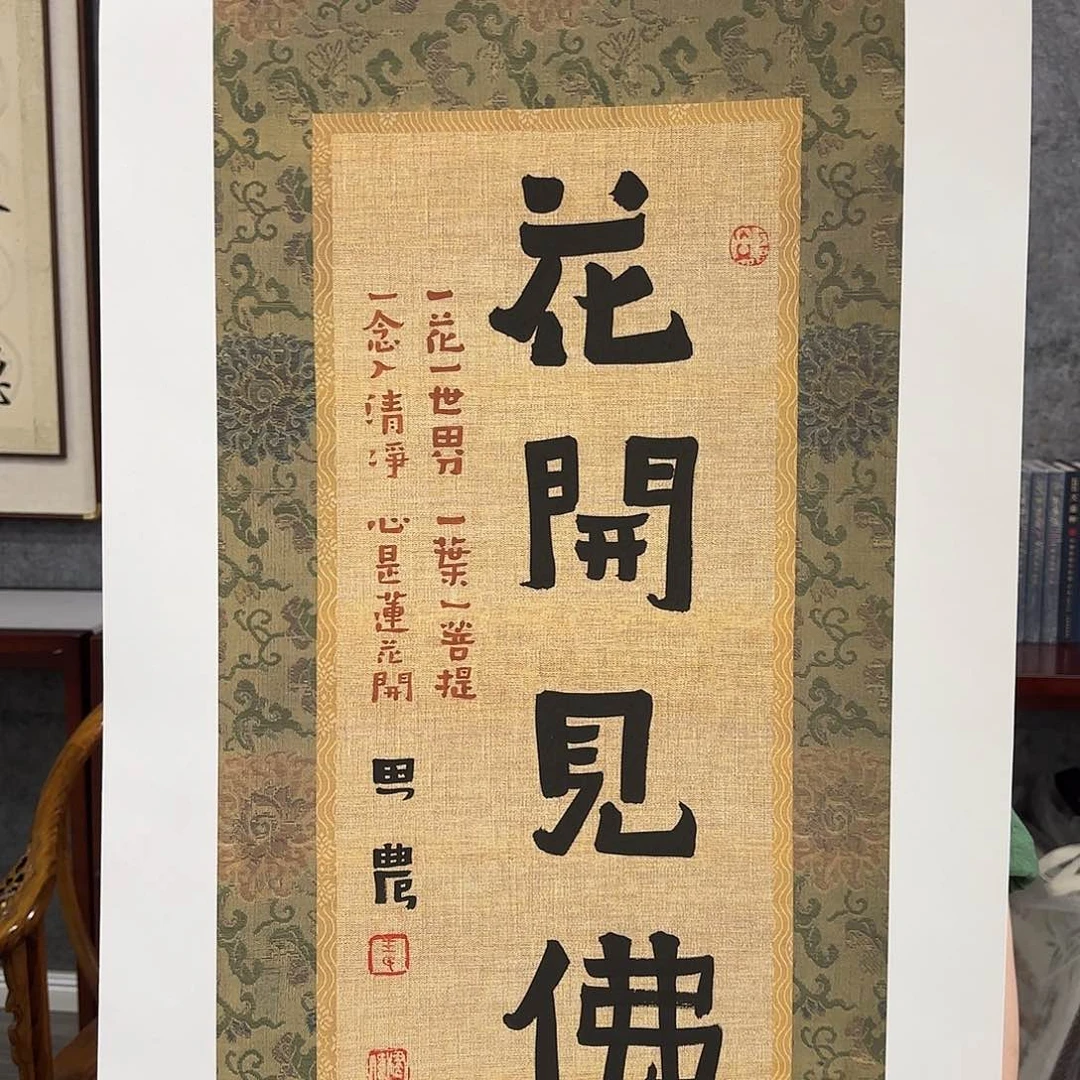 花開見佛
一花一世界 一葉一菩提
一念入清淨 心是蓮花開
男農